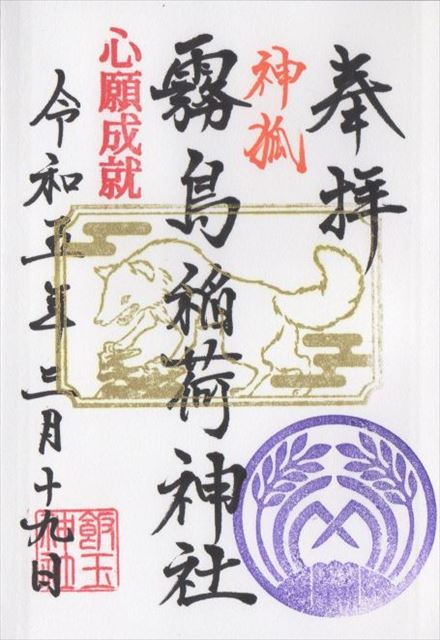 奉拝
神狐
霧島稲荷神社
心願成就
令和五年三月十九日
飯玉神社